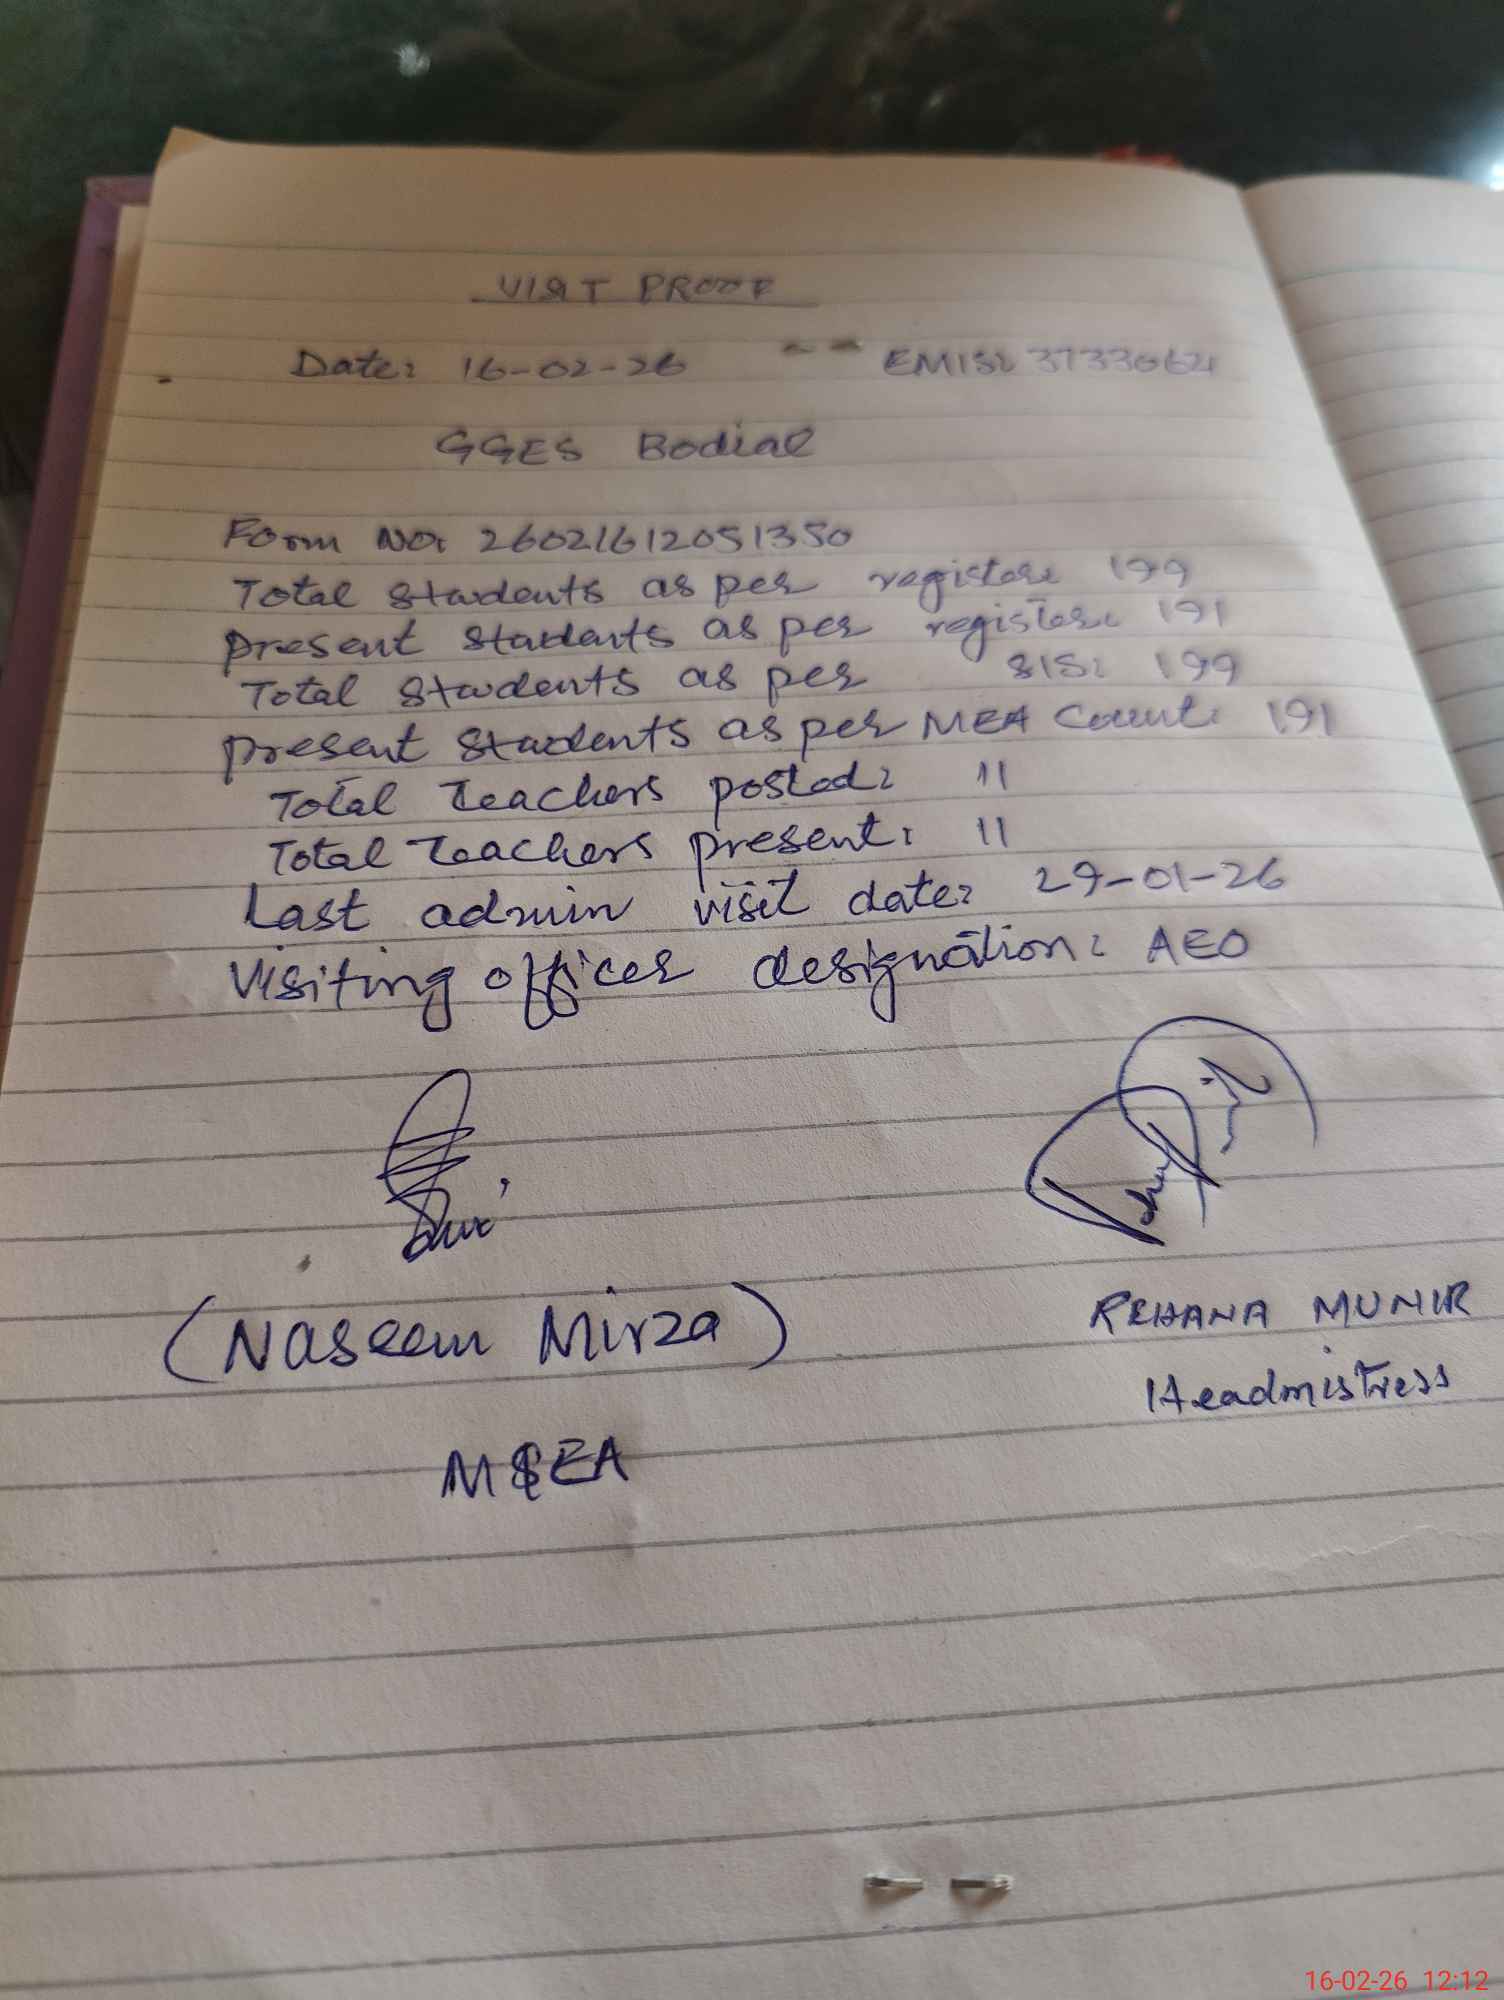 VISIT PROOF
Date: 16-02-26 EMIS: 37330621
GGES Bodial
Form No: 26021612051350
Total students as per register: 199
present students as per register: 191
Total students as per SIS: 199
present students as per MEA Count: 191
Total Teachers posted: 11
Total Teachers present: 11
Last admin visit date: 29-01-26
Visiting officer designation: AEO
(Naseem Mirza)
REHANA MUNIR
Headmistress
MEA
16-02-26 12:12